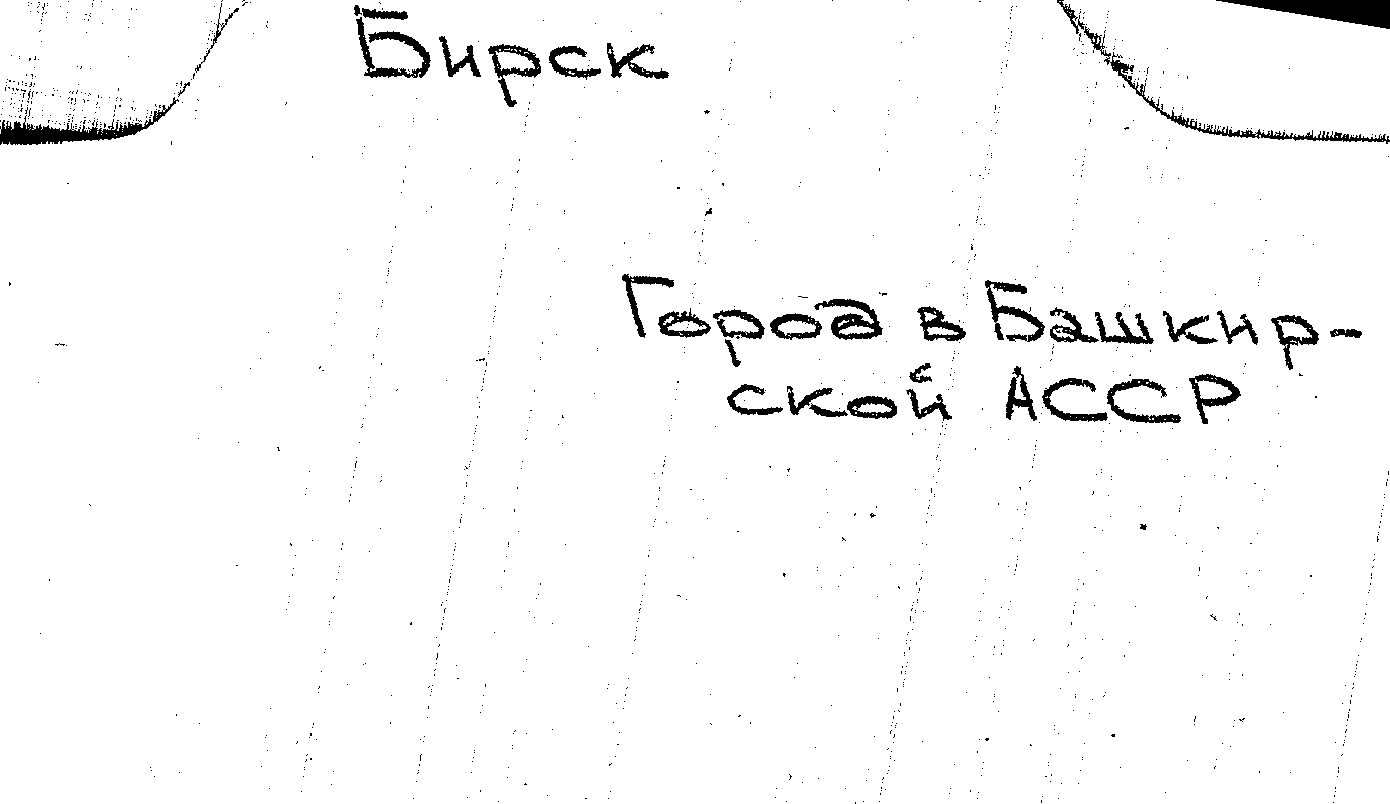 Бирск
Город в Башкир-
ской АССР